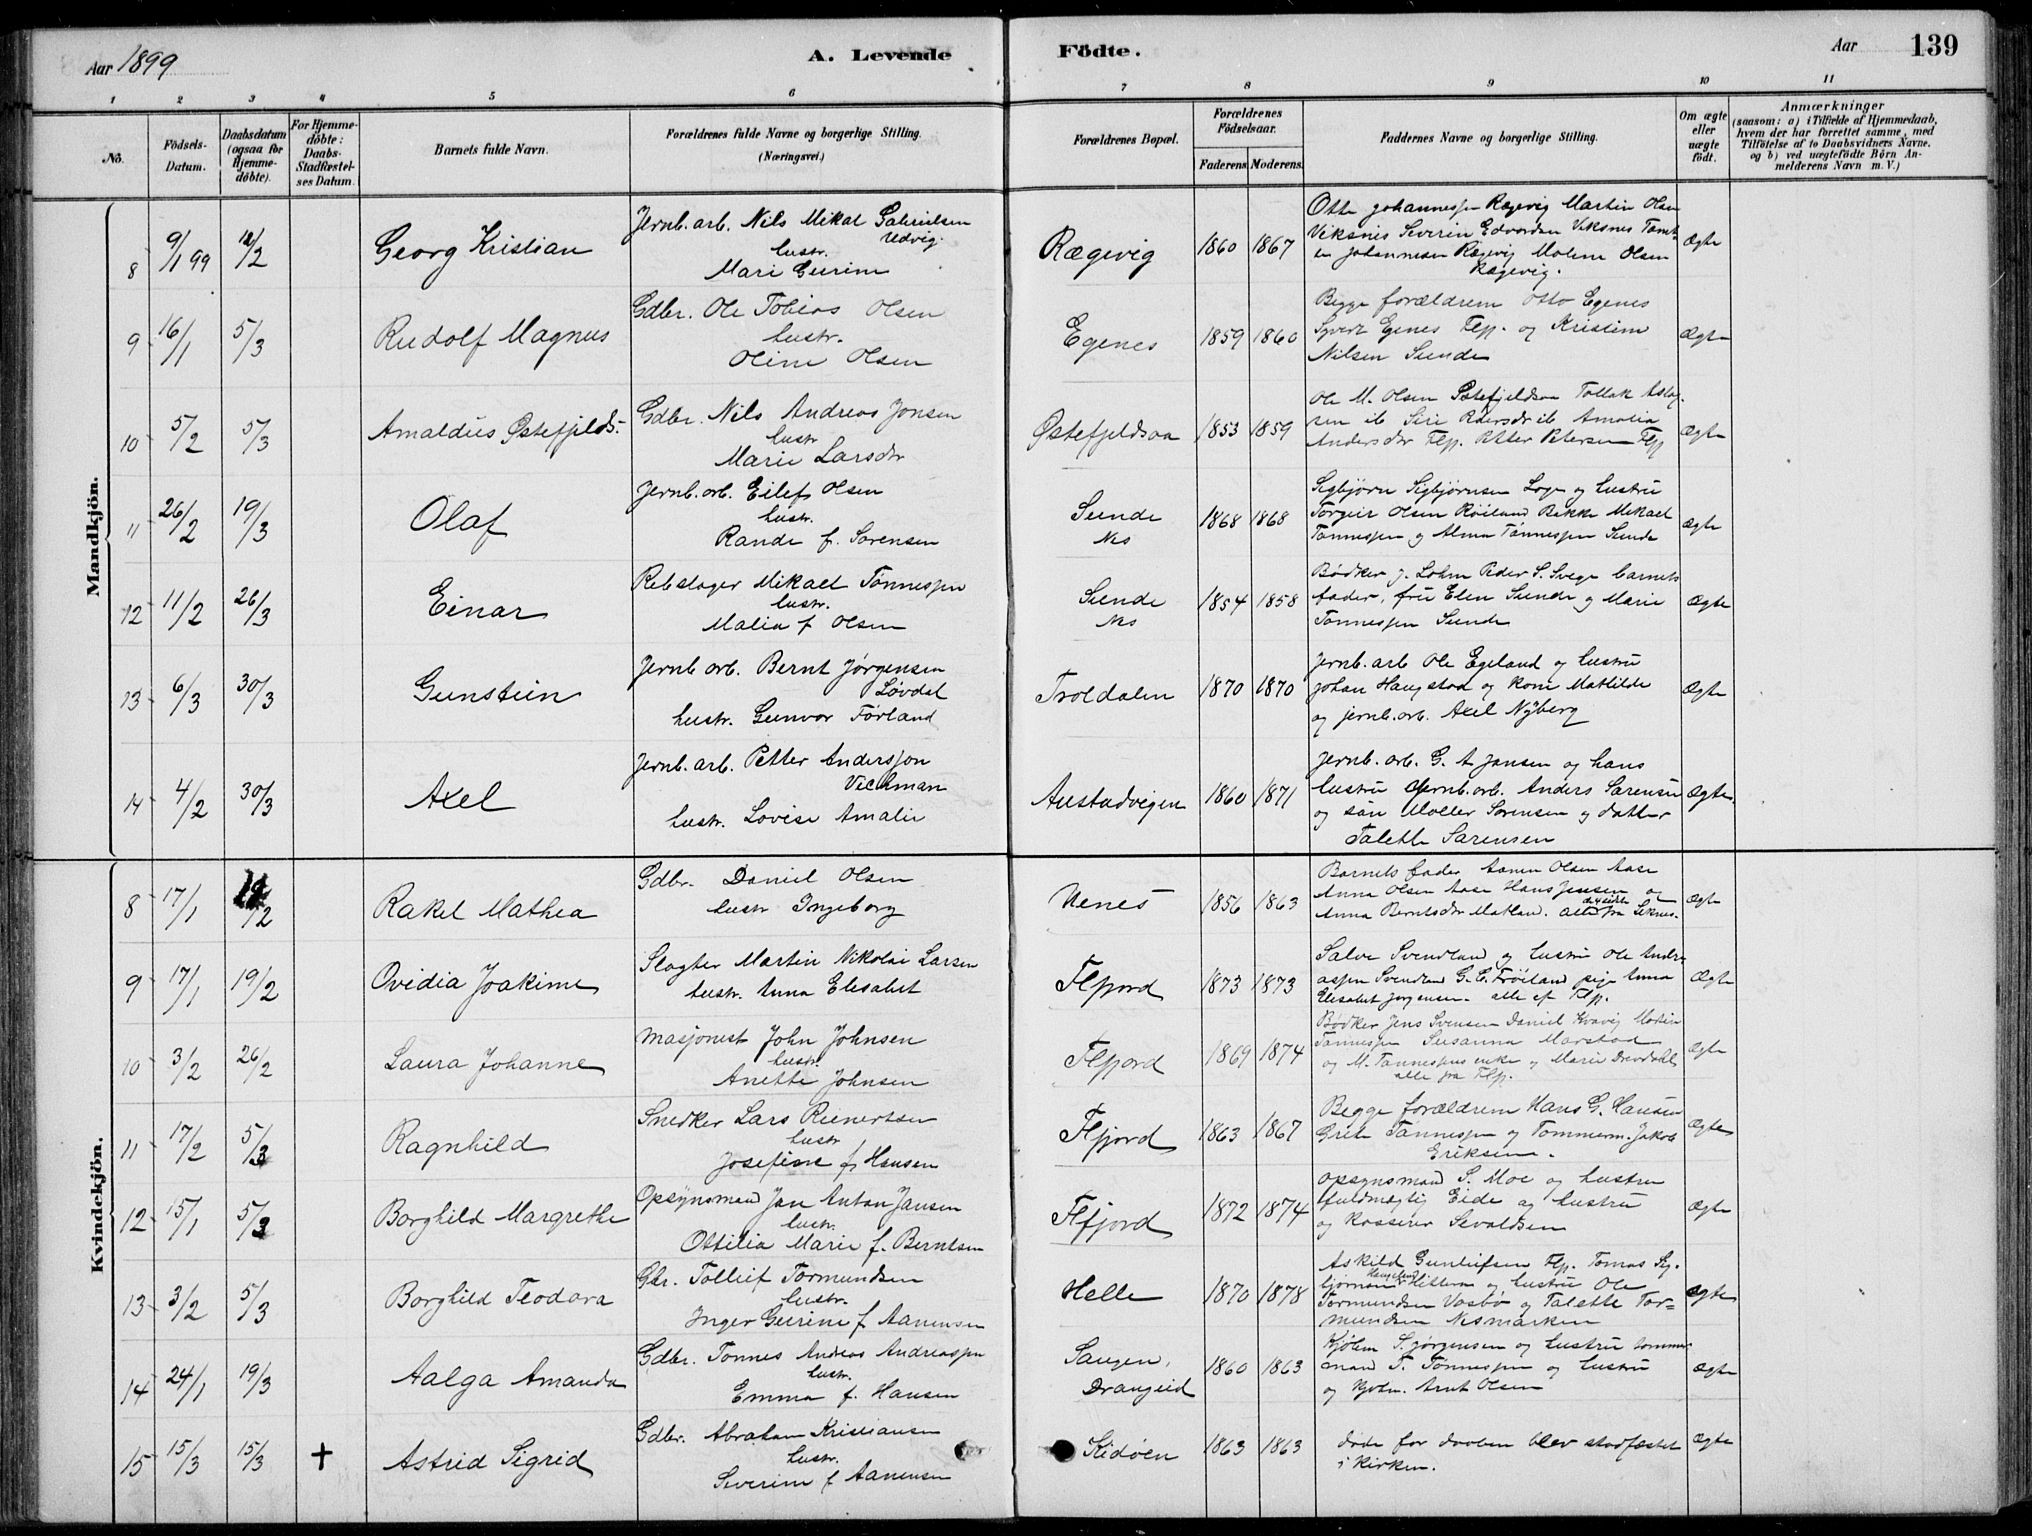 Aar 1899
A. Levende
Födte.
Aar
139
1 2 3 4 5 6 7 8 9 10 11
No.
Födsels-
Datum.
Daabsdatum
(ogsaa for
Hjemme-
döbte).
For Hjemme-
döbte:
Daabs-
Stadfæstel-
ses Datum.
Barnets fulde Navn.
Forældrenes fulde Navne og borgerlige Stilling.
(Næringsvei.)
Forældrenes Bopæl.
Forældrenes
Födselsaar.
Faderens. Moderens.
Faddernes Navne og borgerlige Stilling.
Om ægte
eller
uægte
födt.
Anmærkninger
(saasom: a) i Tilfælde af Hjemmedaab,
hvem der har forrettet samme, med
Tilföielse af to Daabsvidners Navne,
og b) ved uægtefödte Börn An-
melderens Navn m. V.)
Mandkjön.
8 9/1 99 12/2 Georg Kristian
Jernb. arb. Nils Mikal Gabrielsen
Udvig.
hustr.
Mari Gurine
Rægevig 1860 1867
Otto Johannessen Rægevig Martin Olsen
Viksnis Severin Edvardsen Viksnes Tomt-
en Johannesen Rægevig Malene Olsen
Rægevig.
Ægte
9 16/1 5/3 Rudolf Magnus
Gdbr. Ole Tobias Olsen
hustr.
Oline Olsen
Egenes 1859 1860
Begge forældrene Otto Egenes
Egenes Flfj. og Kristine
Nilsen Sunde
Ægte
10 5/2 5/3 Arnaldus Østefjelds.
Gdbr. Nils Andreas Jonsen
hustr
Marie Larsdtr
Østefjeldsaa 1853 1859
Ole M. Olsen Østefjeldsaa Tollak Aslag-
sen ib Siri Pedersdr ib Amalia
Andersdtr Flfj. Petter Petersen Flfj
Ægte
11 26/2 19/3 Olaf
Jernb. arb. Eilef Olsen
hustr.
Rande f. Sørensen
Sunde
Nes
1868 1868
Sigbjørn Sigbjørnsen Loge og hustru
Torgeir Olsen Røiland Bakke Mikael
Tønnessen og Alma Tønnessen Sunde
Ægte
12 11/2 26/3 Einar
Rebslager Mikael Tønnessen
hustr.
Malia f Olsen
Sunde
Nes
1854 1858
Bødker J. Lohne Peder S. Svege barnets
fader, fru Elen Sunde og Marie
Tønnessen Sunde
Ægte
13 6/3 30/3 Gunstein
Jernb. arb. Bernt Jørgensen
Løvdal
hustr. Gunvor Førland
Troldalen 1870 1870
Jernb. arb Ole Egeland og hustru
Johan Haugstad og kone Mathilde
og jernb. arb. Axel Nyberg
Ægte
14 4/2 30/3 Axel
Jernb. arb. Petter Andersson
Veckman
hustr. Lovise Amalie
Austadvigen 1860 1871
Jernb. arb. G. A Jansen og hans
hustru Jernb. arb. Anders Sørensen
og søn Møller Sørensen og datter
Talette Sørensen
Ægte
Kvindekjön.
8 17/1 /2 Rakel Mathea
Gdbr. Daniel Olsen
hustr Ingeborg
Uenes 1856 1863
Barnets fader Aanen Olsen Aase
Anna Olsen Aase Hans Jensen og
Anna Berntsdtr Matland. alle fra Leknes.
Ægte
9 17/1 19/2 Ovidia Joakime
Slagter Martin Nikolai Larsen
hustr. Anna Elisabet
Flfjord 1873 1873
Salve Svendland og hustru Ole Andre-
assen Svendland G. C. Frøiland pige Anna
Elisabet Jørgensen. alle af Flfj.
Ægte
10 3/2 26/2 Laura Johanne
masjonist John Johnsen
hustr.
Anette Johnsen
Flfjord 1869 1874
Bødker Jens Svensen Daniel Kvavig Martin
Tønnessen Susanna Marstad
og M. Tønnessens enke og Marie Drevdahl
alle fra Flfj.
Ægte
11 17/2 5/3 Ragnhild
Snedker Lars Reinertsen
hustr
Josefine f Hansen
Flfjord 1863 1867
Begge forældrene Hans G. Hansen
Grete Tønnessen og Tømmerm. Jakob
Eriksen.
Ægte
12 15/1 5/3 Borghild Margrethe
Opsynsmand Jan Anton Jansen
hustr.
Ottilia Marie f. Berntsen
Flfjord 1872 1874
opsynsmand S. Moe og hustru
fuldmægtig Eide og hustru
og kasserer Sevaldsen
Ægte
13 3/2 5/3 Borghild Teodora
Gbr. Tollief Tormundsen
hustr.
Inger Gurine f Aanensen
Helle 1870 1878
Askild Gunleifsen Flfj. Tomas Sig-
bjørnsen Hitterø og hustru Ole
Tormundsen Vasbø og Talette Tor=
mundsen Nesmarken
Ægte
14 24/1 19/3 Aalga Amanda
Gdbr. Tønnes Andreas Andreassen
hustr.
Emma f. Hansen
Saugen,
Drangeid
1860 1863
Kjøbm S. Jørgensen og hustru tømmer
mand T. Tønnessen og hustru
og Arnt Olsen
Ægte
15 15/3 15/3 + Astrid Sigrid
Gdbr. Abraham Kristiansen
hustr.
Severine f Aanensen
Kidøen 1863 1863
døde før daaben blev stadfæstet
i kirken.
Ægte